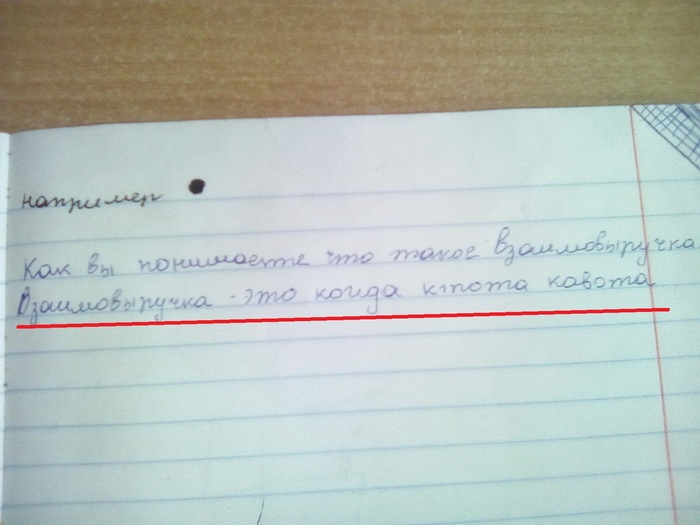 например
Как вы понимаете что такое взаимовыручка
Взаимовыручка - это когда ктота кавота